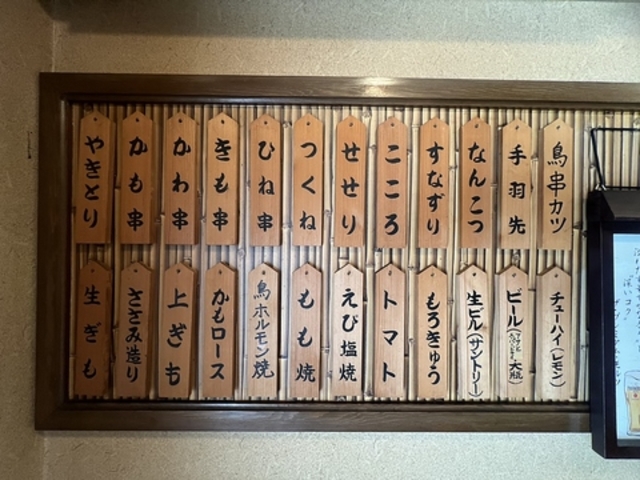 やきとり
かも串
かわ串
きも串
ひね串
つくね
せせり
こころ
すなずり
なんこつ
手羽先
鳥串カツ
生ぎも
ささみ造り
上ぎも
かもロース
鳥ホルモン焼
もも焼
えび塩焼
トマト
もろきゅう
生ビル(サントリー)
ビール(大瓶)
チューハイ(レモン)